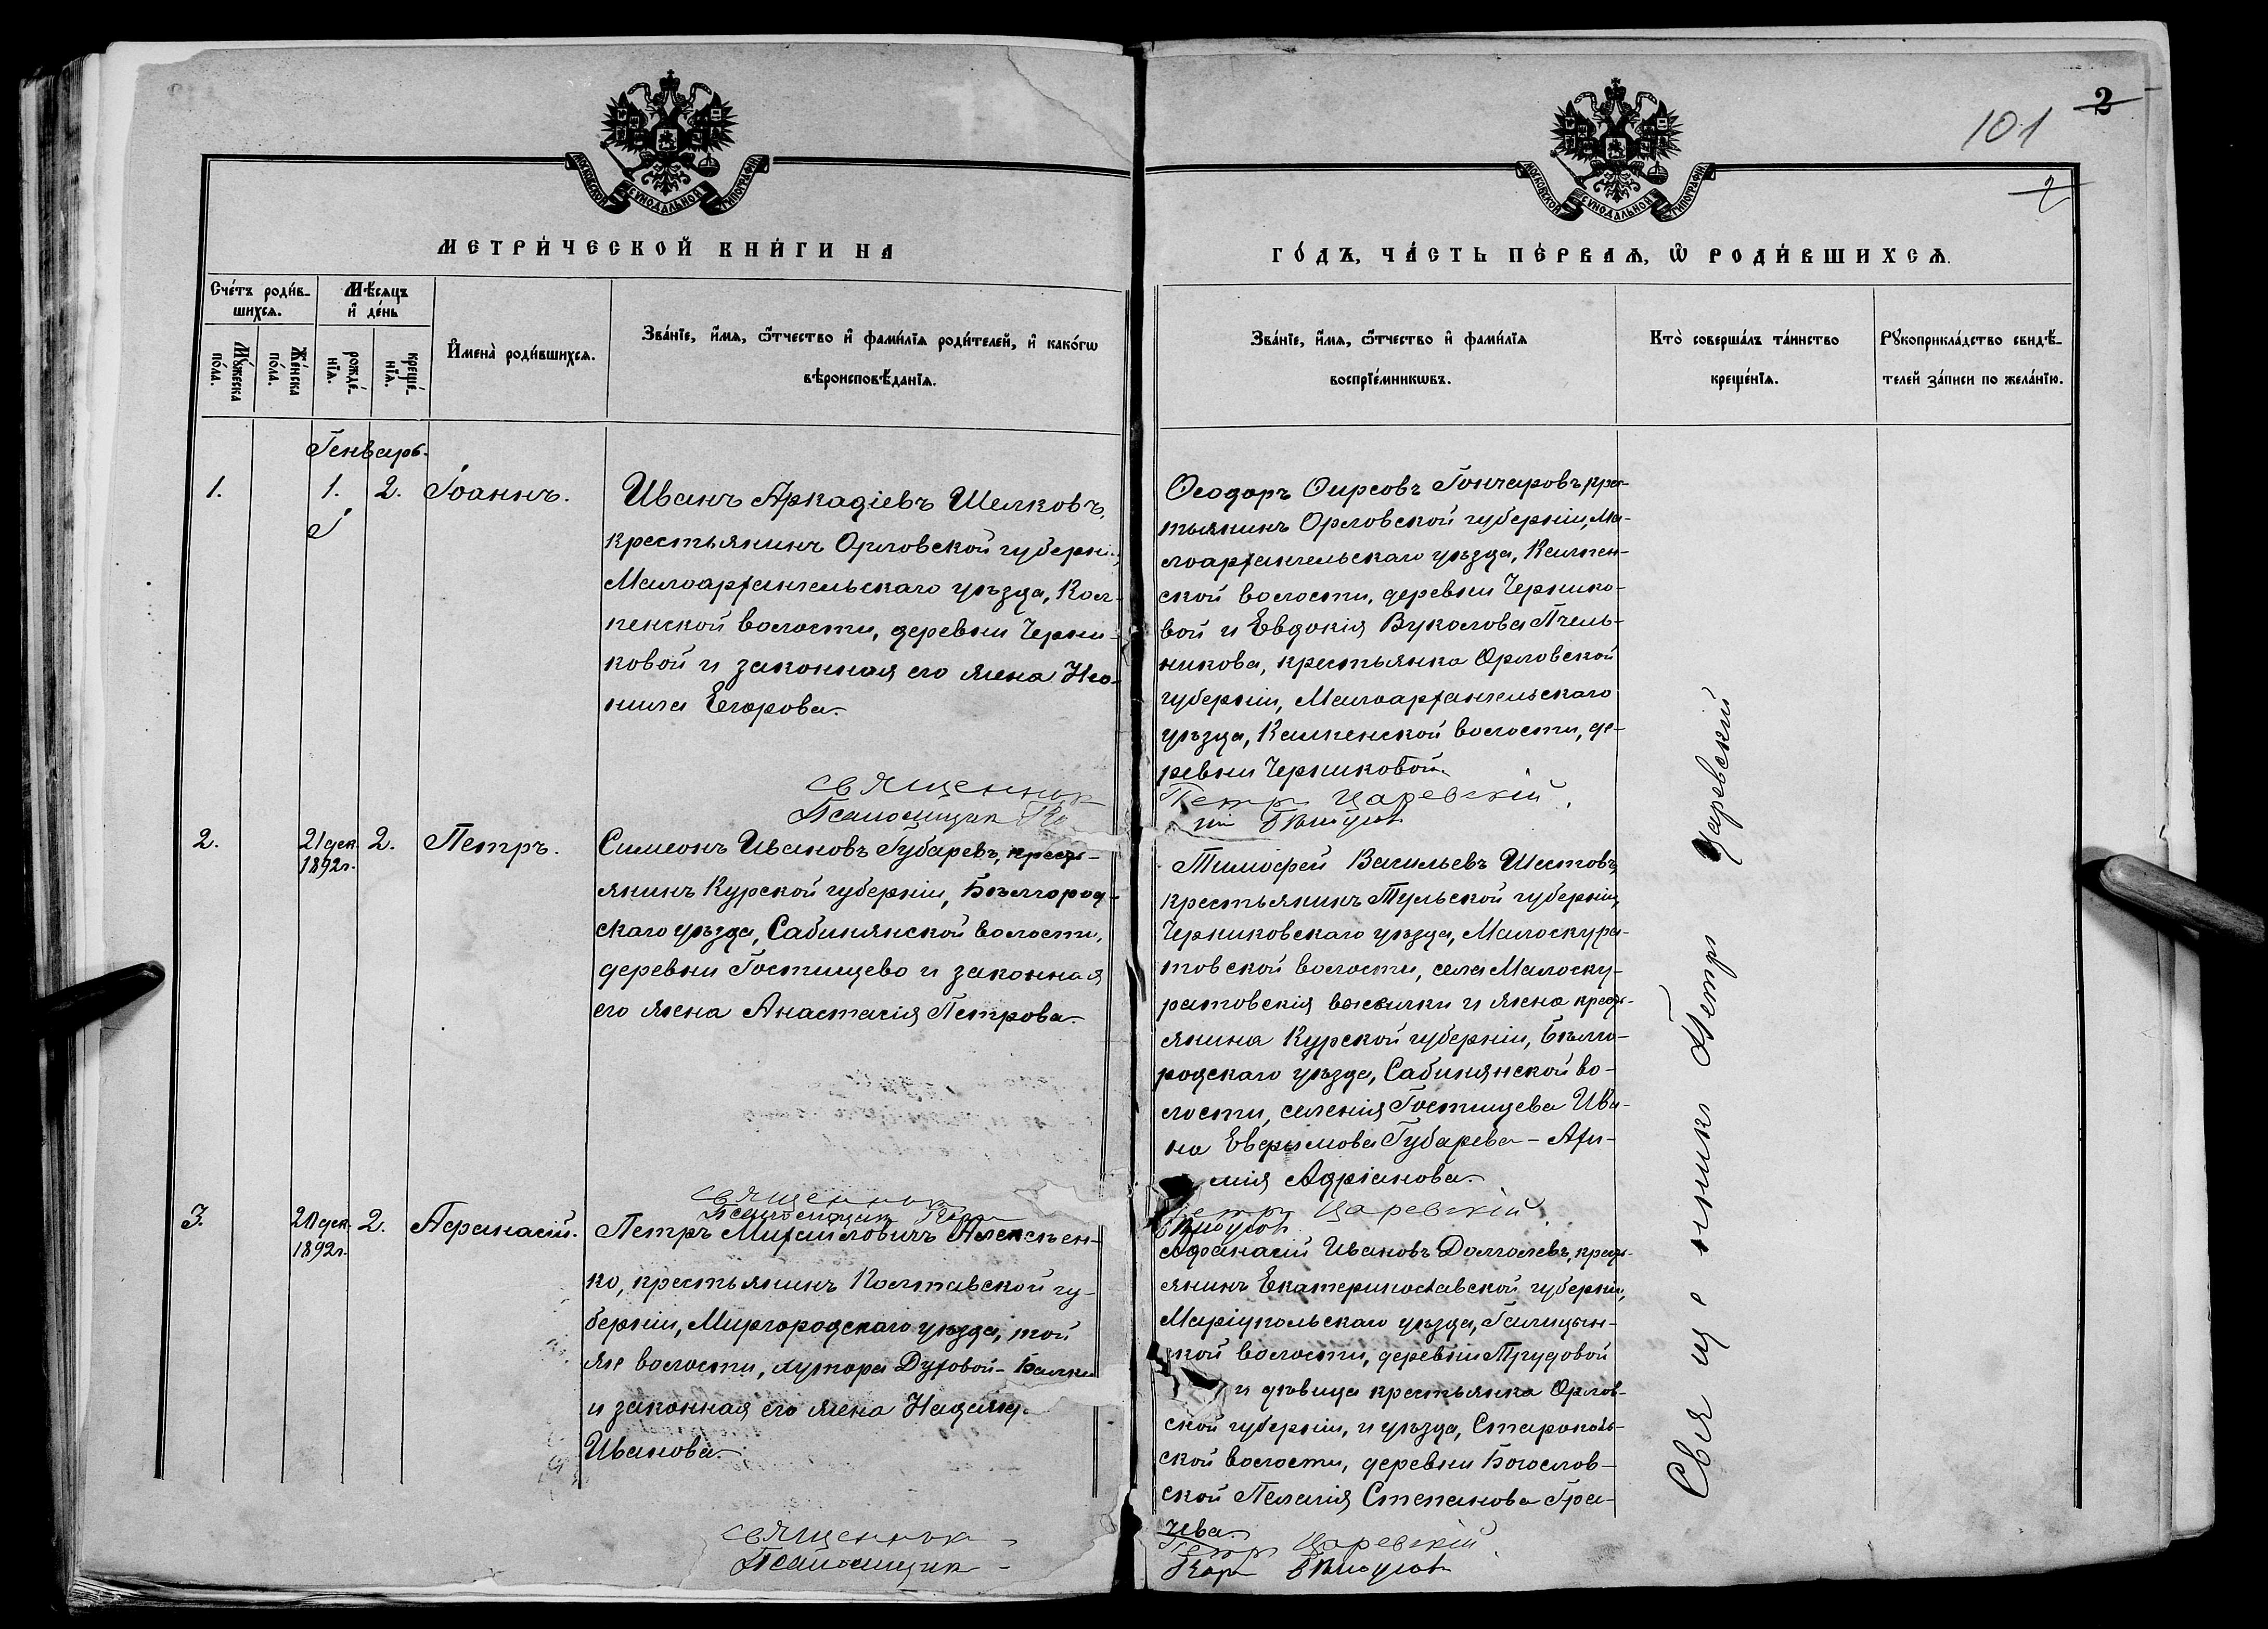 101 2
2
МОСКОВСКОЙ СѴНОДАЛЬНОЙ ТИПОГРАФІИ
МОСКОВСКОЙ СѴНОДАЛЬНОЙ ТИПОГРАФІИ
МЕТРИ́ЧЕСКОЙ КНИ́ГИ НА
ГО́ДЪ, ЧА́СТЬ ПЕ́РВАѦ, Ѡ҆ РОДИ́ВШИХСѦ.
Сче́тъ роди́в-
шихсѧ.
Мꙋ́жеска
по́ла.
Же́нска
по́ла.
Мѣ́сѧцъ
и҆ де́нь
рожде́-
нїѧ.
креще́-
нїѧ.
И҆мена̀ роди́вшихсѧ.
Зва́нїе, и҆́мѧ, ѻ҆́тчество и҆ фами́лїѧ роди́телей, и҆ како́гѡ
вѣроисповѣ́данїѧ.
Зва́нїе, и҆́мѧ, ѻ҆́тчество и҆ фами́лїѧ
воспрїе́мникѡвъ.
Кто̀ соверша́лъ та́инство
креще́нїѧ.
Рꙋкоприкла́дство свидѣ́-
телей за́писи по жела́нїю.
Генварь.
1. 1. 2. Іоаннъ.
Иванъ Аркадіевъ Шелковъ,
крестьянинъ Орловской губерні
Малоархангельскаго уѣзда, Кол-
пенской волости, деревни Черни-
ковой и законная его жена Нео-
нила Егорова.
Священник
Псаломщик
Ѳеодоръ Ѳирсовъ Гончаровъ, крес-
тьянинъ Орловской губерніи, Ма-
лоархангельскаго уѣзда, Калпен-
ской волости, деревни Чернико-
вой и Евдокія Вуколова Пчель-
никова, крестьянка Орловской
губерніи, Малоархангельскаго
уѣзда, Калпенской волости, де-
ревни Черниковой
Петр Царевскій.
2. 21 дек. 1892г. 2. Петръ.
Симеонъ Ивановъ Губаревъ, кресть-
янинъ Курской губерніи, Бѣлгород-
скаго уѣзда, Сабинянской волости,
деревни Гостищево и законная
его жена Анастасія Петрова.
Священник
Псаломщик
Тимофей Васильевъ Шестовъ,
крестьянинъ Тульской губерніи,
Черниковскаго уѣзда, Малоскура-
товской волости, села Малоску-
ратовскія выселки и жена кресть-
янина Курской губерніи, Бѣлго-
родскаго уѣзда, Сабинянской во-
лости, селенія Гостищева Ива-
на Евфимова Губарева - Афи-
мія Адріанова.
Петр Царевскій.
3. 21 дек. 1892г. 2. Афанасій.
Петръ Михайловичъ Алексѣен-
ко, крестьянинъ Полтавской гу-
берніи, Миргородскаго уѣзда, той
же волости, хутора Духовой-Балки
и законная его жена Надежд.
Иванова.
Священник
Псаломщик
Афанасій Ивановъ Долголевъ, кресть-
янинъ Екатеринославской губерніи,
Маріупольскаго уѣзда, Галицын-
кой волости, деревни Трудовой
и дѣвица крестьянка Орлов-
ской губерніи, и уѣзда, Староколь-
ской волости, деревни Богослов-
ской Пелагія Степанова Гра-
чева.
Петр Царевскій.
Священник Петр Царевскій